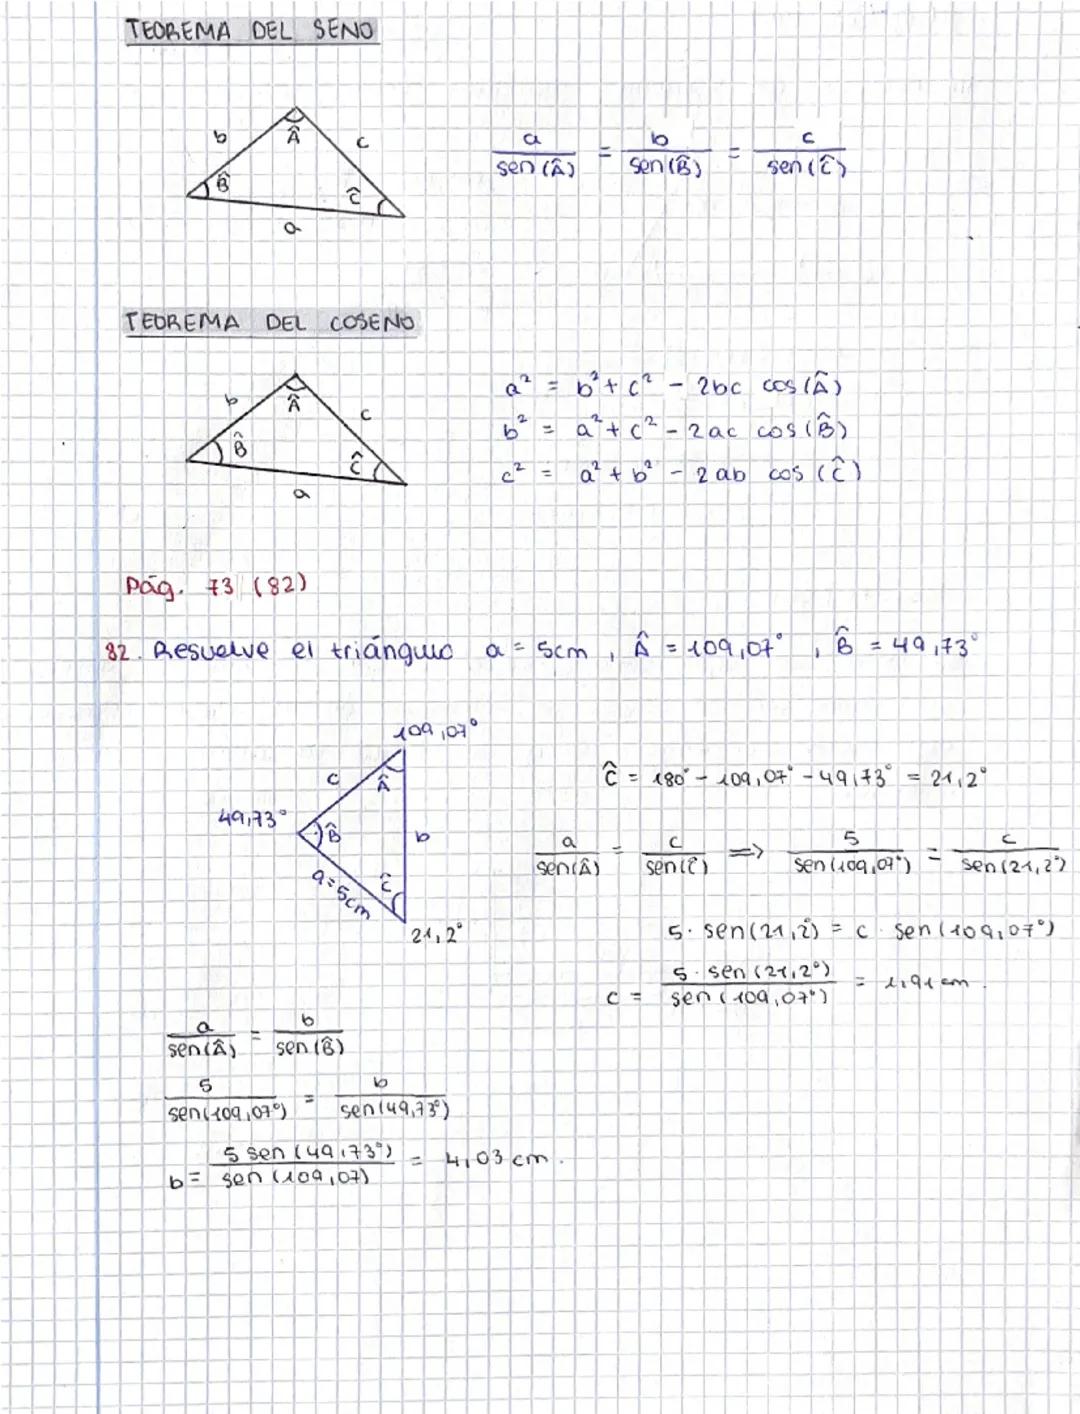 TEOREMA DEL SENO
b Â c
B̂ Ĉ
a
a/sen(Â) = b/sen(B̂) = c/sen(Ĉ)
TEOREMA DEL COSENO
b Â c
B̂ Ĉ
a
a² = b² + c² - 2bc cos(Â)
b² = a² + c² - 2ac cos(B̂)
c² = a² + b² - 2ab cos(Ĉ)
Pág. 73 (82)
82. Resuelve el triángulo a = 5cm, Â = 109,07°, B̂ = 49,73°
109,07°
c Â
49,73° B̂ b
a=5cm Ĉ
21,2°
Ĉ = 180° - 109,07° - 49,73° = 21,2°
a/sen(Â) = c/sen(Ĉ) ⟹ 5/sen(109,07°) = c/sen(21,2°)
5 · sen(21,2) = c · sen(109,07°)
c = 5 · sen(21,2°)/sen(109,07°) = 1,91 cm.
a/sen(Â) = b/sen(B̂)
5/sen(109,07°) = b/sen(49,73°)
b = 5 sen(49,73°)/sen(109,07) = 4,03 cm.